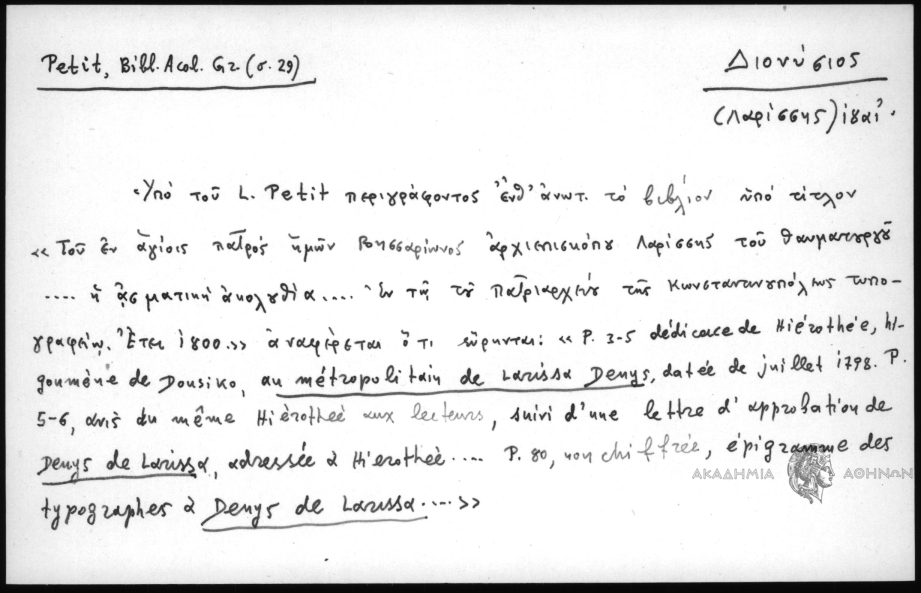 Petit, Bibl. Acol. Gr. (σ. 29)
Διονύσιος
(Λαρίσσης) ιθαϊ.
Ὑπό τοῦ L. Petit περιγράφοντος ἔνθ' ἀνωτ. τό βιβλίον ὑπό τίτλον
«Τοῦ ἐν ἁγίοις πατρός ἡμῶν Βησσαρίωνος ἀρχιεπισκόπου Λαρίσσης τοῦ θαυματουργοῦ
.... ἡ ᾀσματική ἀκολουθία.... Ἐν τῇ τοῦ Πατριαρχείου τῆς Κωνσταντινουπόλεως τυπο-
γραφείῳ. Ἔτει 1800.» ἀναφέρεται ὅτι εὕρηνται: «P. 3-5 dédicace de Hiérothée, hi-
goumène de Dousiko, au métropolitain de Larissa Denys, datée de juillet 1798. P.
5-6, avis du même Hiérotheé aux lecteurs, suivi d'une lettre d'approbation de
Denys de Larissa, adressée à Hierotheè.... P. 80, non chiffrée, épigramme des
ΑΚΑΔΗΜΙΑ ΑΘΗΝΩΝ
typographes à Denys de Larissa....»